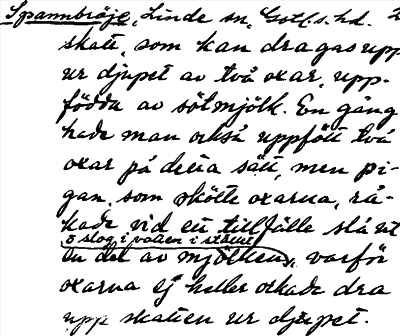 Spannbröje, Linde sn, Gotl.s. hd. 
skatt, som kan dragas upp
ur djupet av två oxar, upp-
födda av sötmjölk. En gång
hade man också uppfött två
oxar på detta sätt, men pi-
gan, som skötte oxarna, rå-
kade vid ett tillfälle slå ut
o slog i vatten i stället
en del av mjölken, varför
oxarna ej heller orkade dra
upp skatten ur djupet.